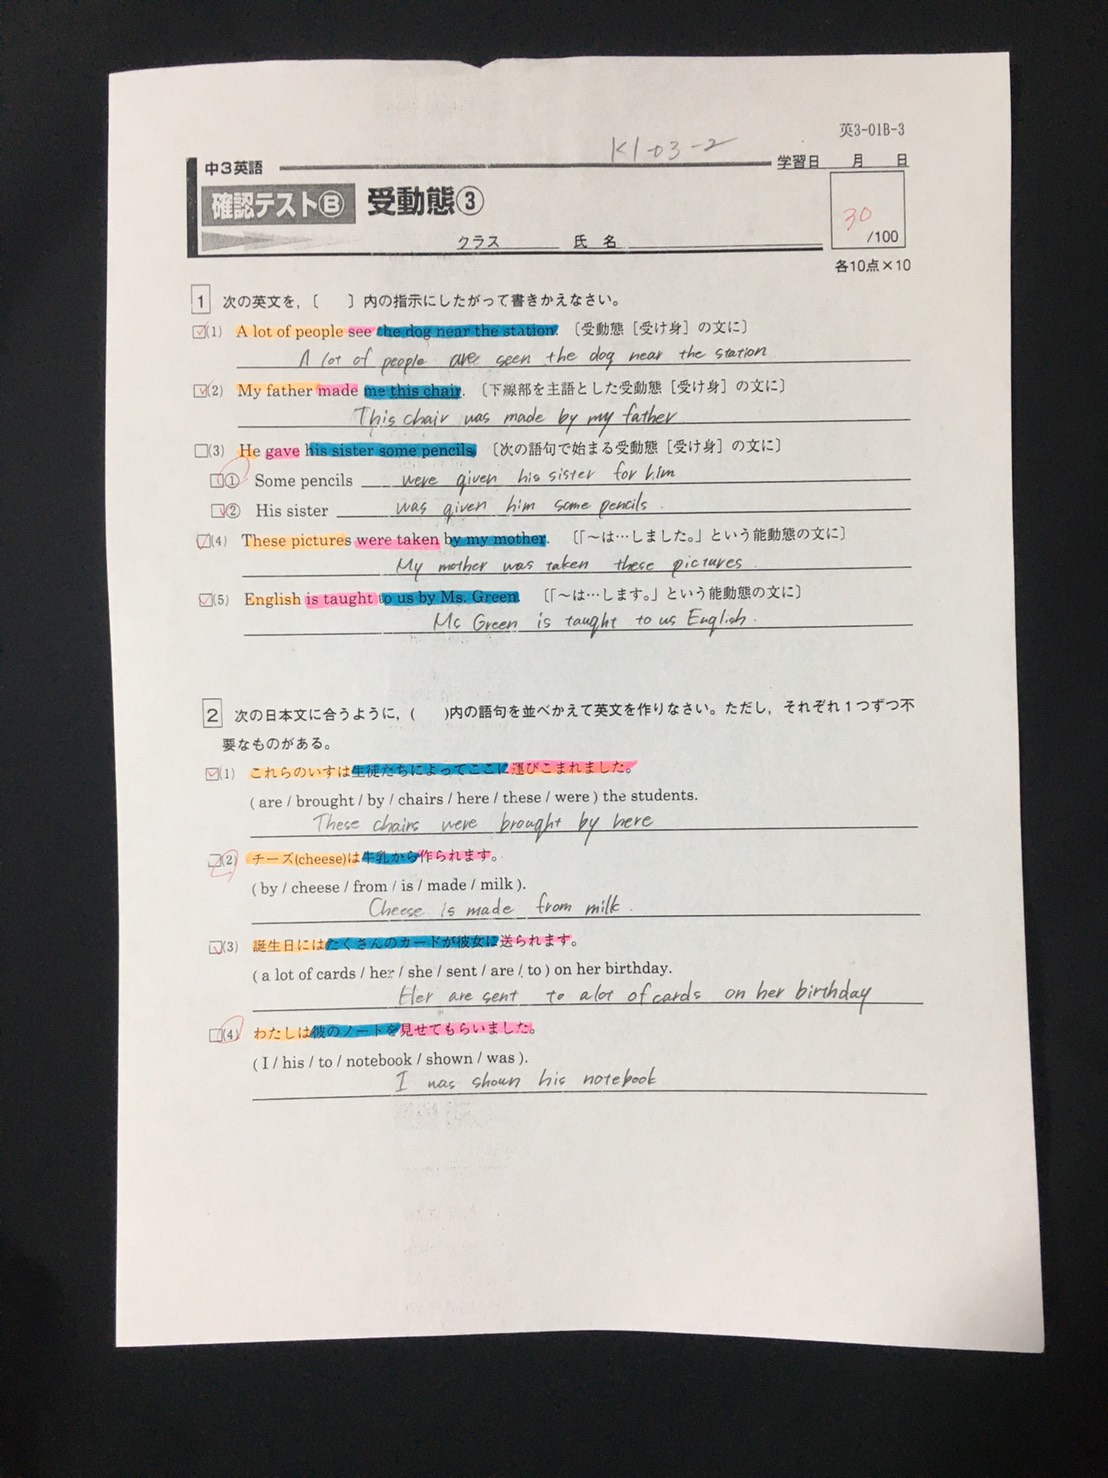 英3-01B-3
K1-03-2
中3英語
学習日 月 日
確認テストⒷ 受動態③
30
/100
クラス 氏名
各10点×10
1 次の英文を,〔 〕内の指示にしたがって書きかえなさい。
(1) A lot of people see the dog near the station. 〔受動態［受け身］の文に〕
A lot of people are seen the dog near the station
(2) My father made me this chair. 〔下線部を主語とした受動態［受け身］の文に〕
This chair was made by my father
(3) He gave his sister some pencils. 〔次の語句で始まる受動態［受け身］の文に〕
① Some pencils were given his sister for him
② His sister was given him some pencils.
(4) These pictures were taken by my mother. 〔「～は…しました。」という能動態の文に〕
My mother was taken these pictures.
(5) English is taught to us by Ms. Green. 〔「～は…します。」という能動態の文に〕
Ms Green is taught to us English.
2 次の日本文に合うように,( )内の語句を並べかえて英文を作りなさい。ただし, それぞれ1つずつ不
要なものがある。
(1) これらのいすは生徒たちによってここに運びこまれました。
( are / brought / by / chairs / here / these / were ) the students.
These chairs were brought by here
(2) チーズ(cheese)は牛乳から作られます。
( by / cheese / from / is / made / milk ).
Cheese is made from milk.
(3) 誕生日にはたくさんのカードが彼女に送られます。
( a lot of cards / her / she / sent / are / to ) on her birthday.
Her are sent to a lot of cards on her birthday
(4) わたしは彼のノートを見せてもらいました。
( I / his / to / notebook / shown / was ).
I was shown his notebook